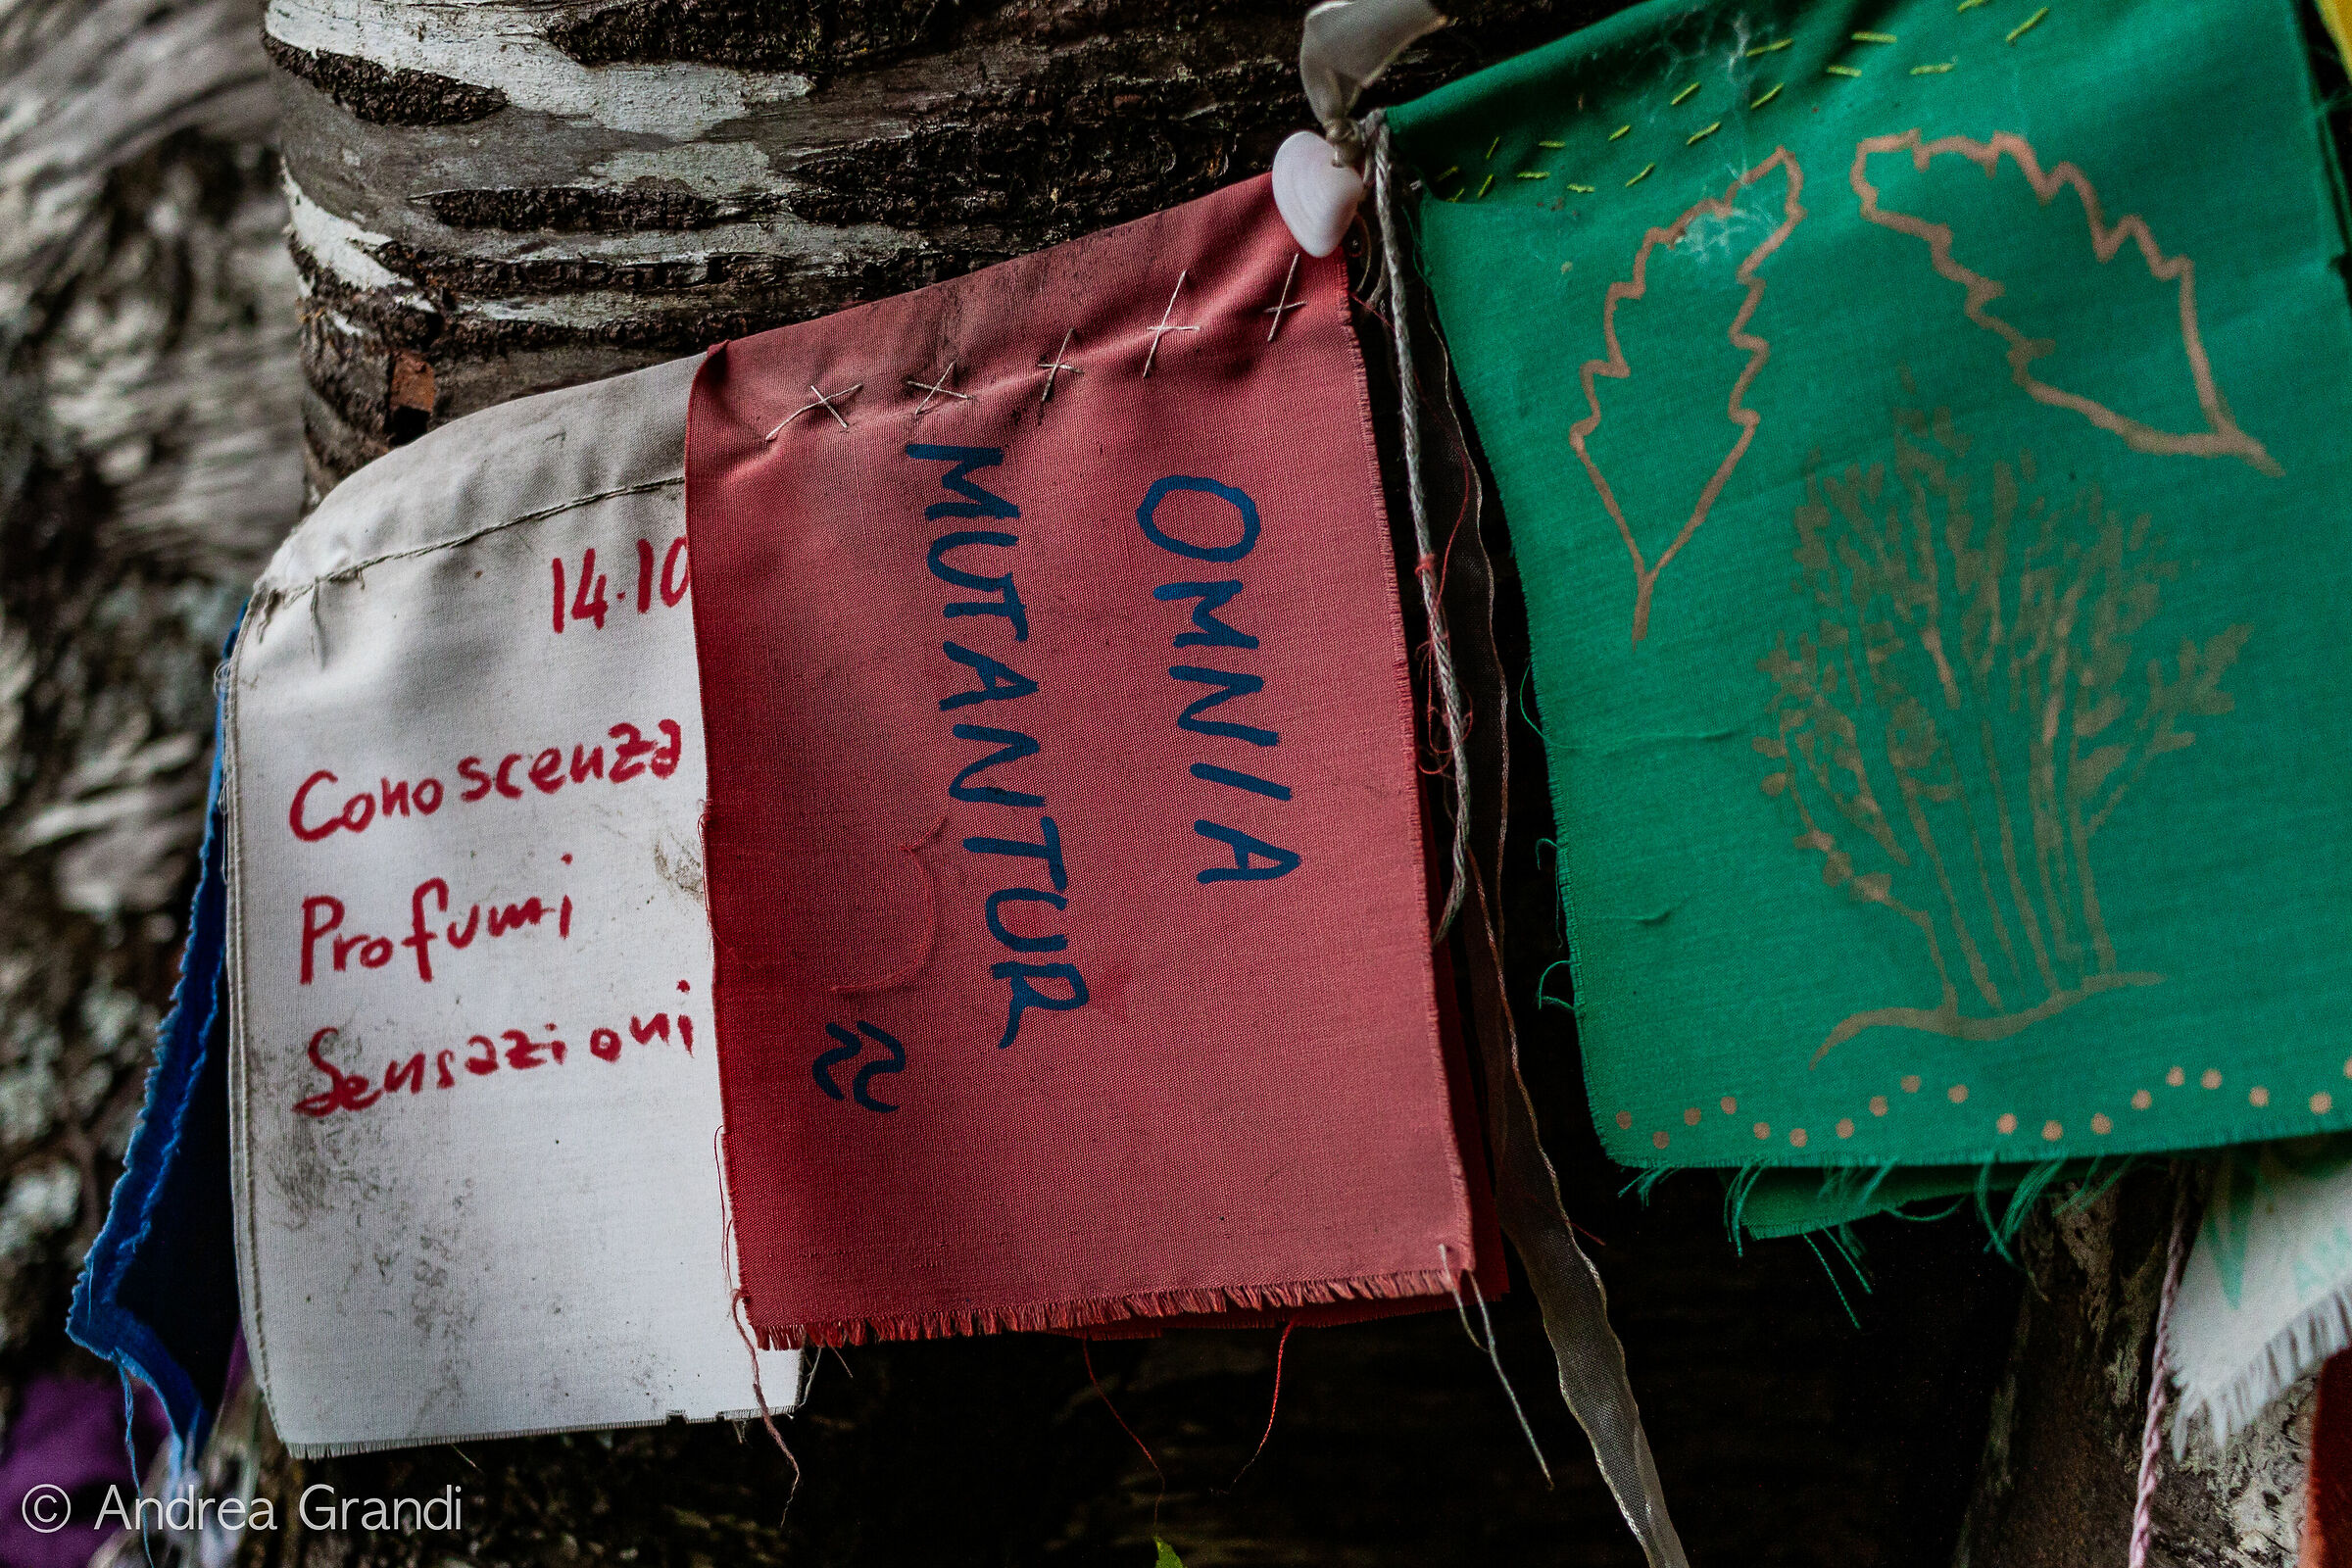 14.10
Conoscenza
Profumi
Sensazioni
OMNIA
MUTANTUR
© Andrea Grandi